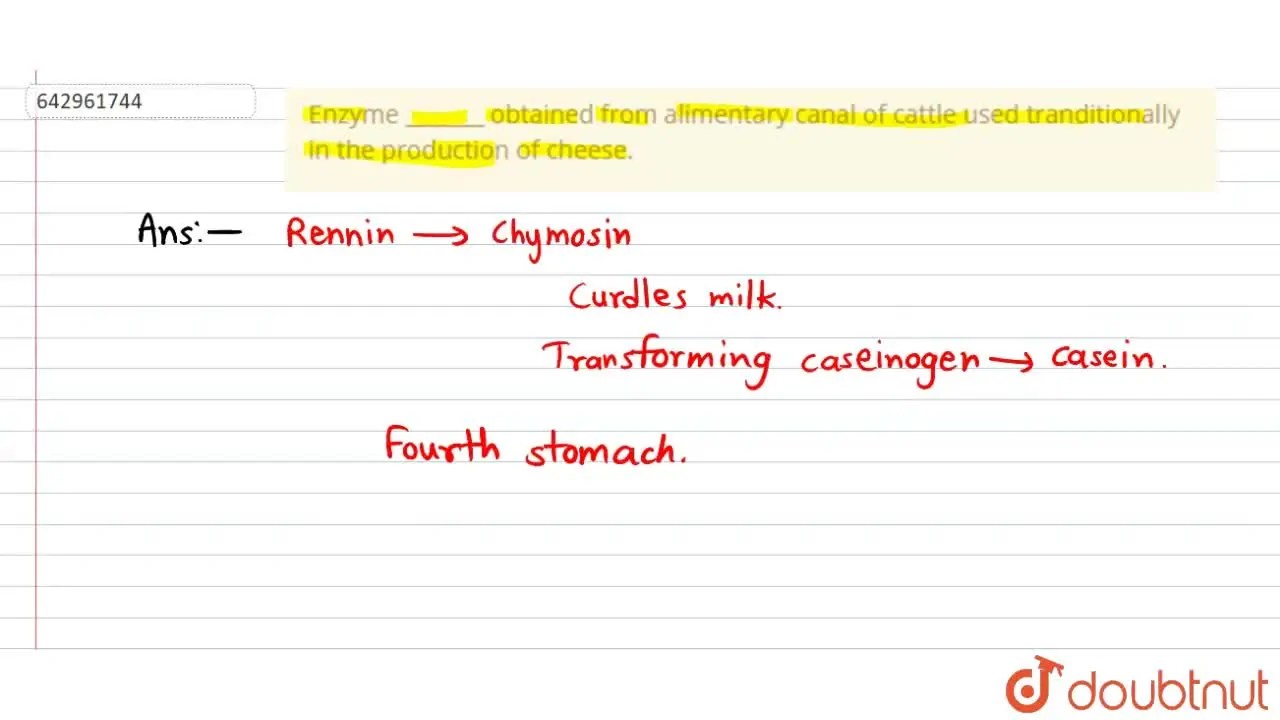 642961744
Enzyme ______ obtained from alimentary canal of cattle used tranditionally
in the production of cheese.
Ans:— Rennin → Chymosin
Curdles milk.
Transforming caseinogen → casein.
Fourth stomach.
doubtnut